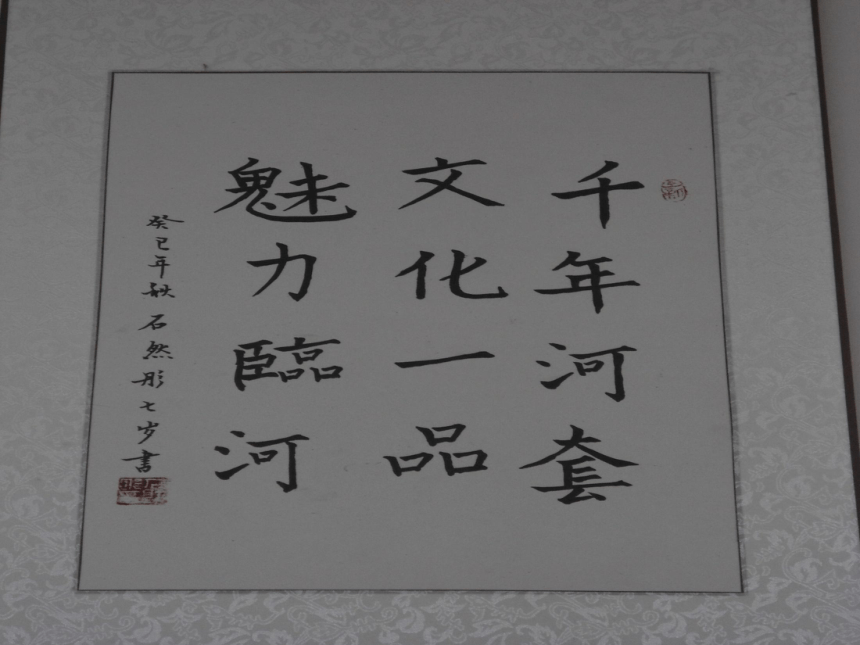 千年河套
文化一品
魅力臨河
癸巳年秋石然彤七岁書